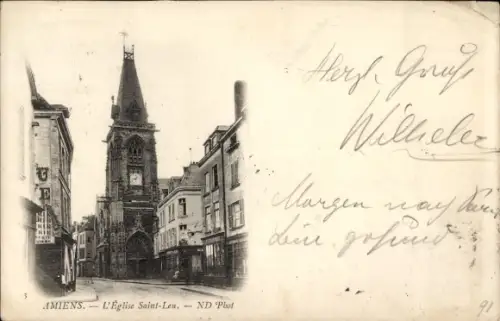 Herzl. Gruß
Wilhelm
Morgen nach Paris
bin gesund
AMIENS. — L'Église Saint-Leu. — ND Phot
91